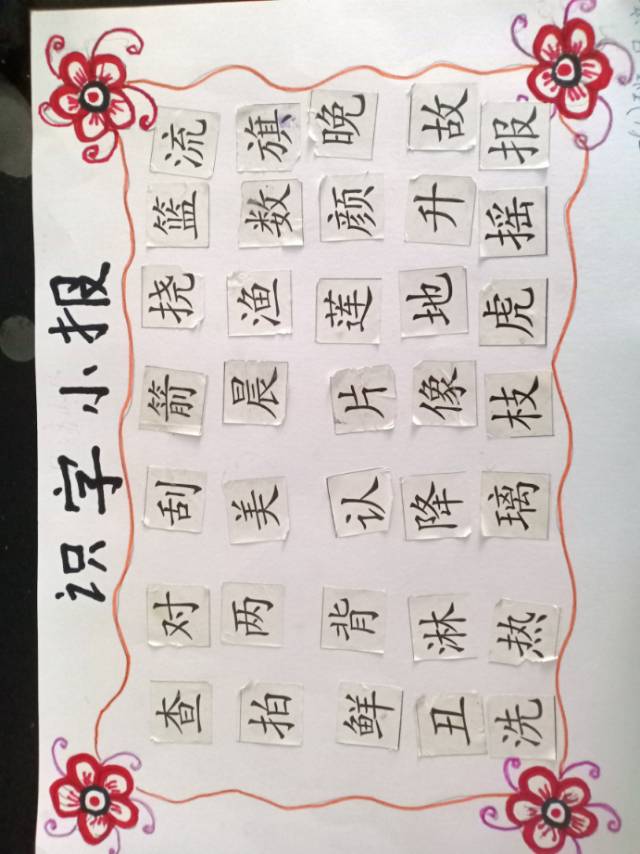 识字小报
查对刮箭挠篮流
拍两美晨渔数旗
鲜背认片莲颜晚
丑淋降像地升故
洗热璃枝虎摇报